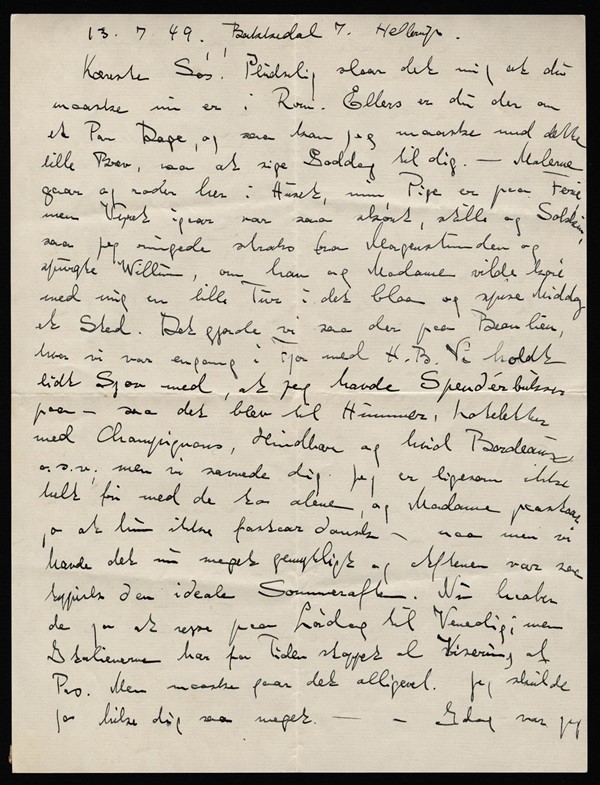 13. 7 49. Bakkedal 7. Hellerup.
Kæreste Søs! Pludselig slaar det mig at du
maaske nu er i Rom. Ellers er du der om
et Par Dage, og saa kan jeg maaske med dette
lille Brev, naa at sige Goddag til dig. — Malerne
gaar og roder her i Huset, min Pige er paa Ferie,
men Vejret igaar var saa skønt, stille og Solskin,
saa jeg ringede straks fra Morgenstunden og
spurgte Willum, om han og Madame vilde køre
med mig en lille Tur i det blaa og spise Middag
et Sted. Det gjorde vi saa der paa Beaulieu,
hvor vi var engang i Fjor med H.B. Vi holdt
lidt Sjov med, at jeg havde Spendérbukser
paa — saa det blev til Hummer, Koteletter
med Champignons, Hindbær og hvid Bordeaux
o.s.v; men vi savnede dig. Jeg er ligesom ikke
helt fri med de to alene, og Madame paastaar
jo at hun ikke forstaar dansk — naa men vi
havde det nu meget gemytligt og Aftenen var saa
typisk den ideale Sommeraften. Nu haaber
de jo at rejse paa Lørdag til Venedig; men
Italienerne har for Tiden stoppet al Visering af
Pas. Men maaske gaar det alligevel. Jeg skulde
jo hilse dig saa meget. — — Idag var jeg